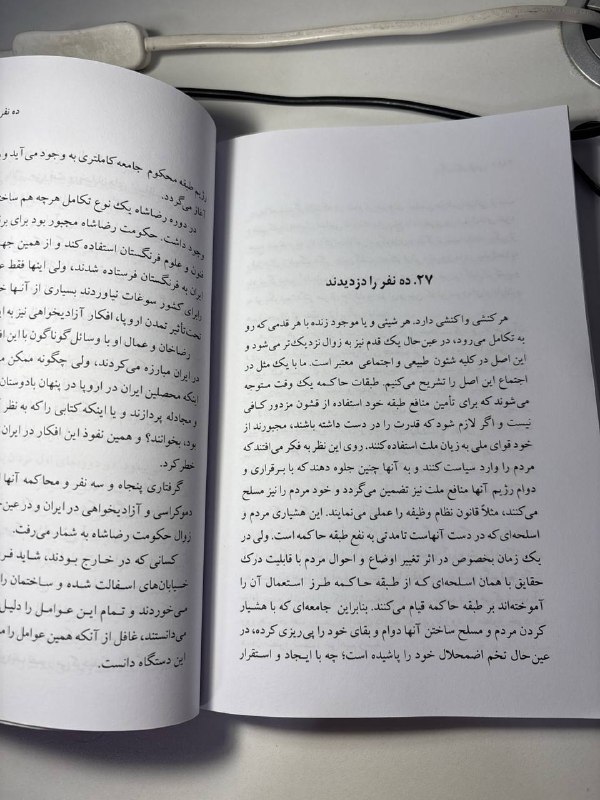 ۲۷. ده نفر را دزدیدند
هر کنشی واکنشی دارد. هر شیئی و یا موجود زنده با هر قدمی که رو
به تکامل می‌رود، در عین حال یک قدم نیز به زوال نزدیک‌تر می‌شود و
این اصل در کلیه شئون طبیعی و اجتماعی معتبر است. ما با یک مثل در
اجتماع این اصل را تشریح می‌کنیم. طبقات حاکمه یک وقت متوجه
می‌شوند که برای تأمین منافع طبقه خود استفاده از قشون مزدور کافی
نیست و اگر لازم شود که قدرت را در دست داشته باشند، مجبورند از
خود قوای ملی به زیان ملت استفاده کنند. روی این نظر به فکر می‌افتند که
مردم را وارد سیاست کنند و به آنها چنین جلوه دهند که با برقراری و
دوام رژیم آنها منافع ملت نیز تضمین می‌گردد و خود مردم را نیز مسلح
می‌کنند، مثلاً قانون نظام وظیفه را عملی می‌نمایند. این هشیاری مردم و
اسلحه‌ای که در دست آنهاست تا مدتی به نفع طبقه حاکمه است. ولی در
یک زمان بخصوص در اثر تغییر اوضاع و احوال مردم با قابلیت درک
حقایق با همان اسلحه‌ای که از طبقه حاکمه طرز استعمال آن را
آموخته‌اند بر طبقه حاکمه قیام می‌کنند. بنابراین جامعه‌ای که با هشیار
کردن مردم و مسلح ساختن آنها دوام و بقای خود را پی‌ریزی کرده، در
عین حال تخم اضمحلال خود را پاشیده است؛ چه با ایجاد و استقرار
ده نفر
رژیم طبقه محکوم جامعه کاملتری به وجود می‌آید و
آغاز می‌گردد.
در دوره رضاشاه یک نوع تکامل هرچه هم
وجود داشت. حکومت رضاشاه مجبور بود برای
فنون و علوم فرنگستان استفاده کند و از همین
ایران به فرنگستان فرستاده شدند، ولی اینها فقط
را برای کشور سوغات نیاوردند بسیاری از آنها
تحت تأثیر تمدن اروپا، افکار آزادیخواهی نیز به
رضاخان و عمال او با وسائل گوناگون با این
در ایران مبارزه می‌کردند، ولی چگونه ممکن
اینکه محصلین ایران در اروپا در پنهان با دوستان
و مجادله پردازند و یا اینکه کتابی را که به نظر
بود، بخوانند؟ و همین نفوذ این افکار در ایران
خطر کرد.
گرفتاری پنجاه و سه نفر و محاکمه آنها
دموکراسی و آزادیخواهی در ایران و در عین
زوال حکومت رضاشاه به شمار می‌رفت.
کسانی که در خارج بودند، شاید
خیابان‌های اسفالت شده و ساختمان
می‌خوردند و تمام این عوامل را دلیل
می‌دانستند، غافل از آنکه همین عوامل را
این دستگاه دانست.